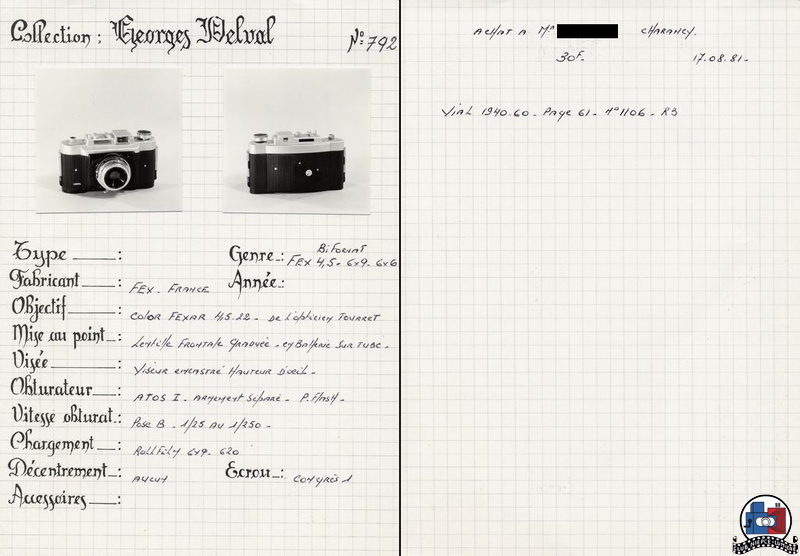 Collection : Georges Delval
Nº 792
Type : Genre : Biformat
FEX 4,5 - 6x9 - 6x6
Fabricant : FEX - FRANCE Année :
Objectif : COLOR FEXAR 4,5.22 - De l'opticien TOURRET
Mise au point : Lentille Frontale Graduée - en Sur Tube -
Visée : Viseur encastré Hauteur D'oeil -
Obturateur : ATOS I - Armement séparé - P. Flash -
Vitesse obturat. : Pose B - 1/25 AU 1/250 -
Chargement : Roll Film 6x9 - 620
Décentrement : Aucun Ecrou : Congrès 1
Accessoires :
ACHAT A Mr CHARANCY.
30F. 17.08.81 -
Vial 1940.60 - Page 61 - n° 1106 - R3